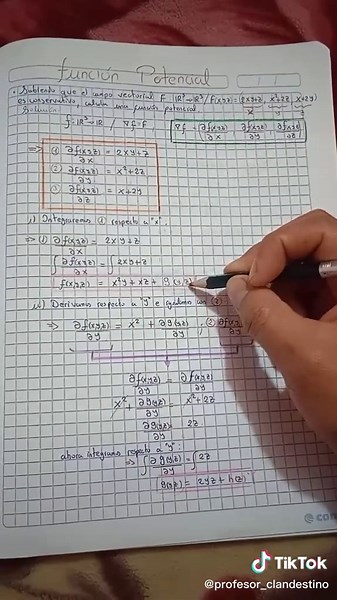 Función Potencial
• Sabiendo que el campo vectorial F: ℝ³→ℝ³/ f(x,y,z) = (2xy+z, x²+2z, x+2y)
es conservativo, calcula una función potencial.
Solución
f: ℝ³→ℝ / ∇f = F
∇f = (∂f(x,y,z)/∂x, ∂f(x,y,z)/∂y, ∂f(x,y,z)/∂z)
=> ① ∂f(x,y,z)/∂x = 2xy+z
② ∂f(x,y,z)/∂y = x²+2z
③ ∂f(x,y,z)/∂z = x+2y
i) Integraremos ① respecto a "x".
=> ① ∂f(x,y,z)/∂x = 2xy+z
∫ ∂f(x,y,z)/∂x = ∫ 2xy+z
f(x,y,z) = x²y + xz + g(y,z)
ii) Derivamos respecto a "y" e igualamos con ②
=> ∂f(x,y,z)/∂y = x² + ∂g(y,z)/∂y ; ② ∂f(x,y,z)/∂y
∂f(x,y,z)/∂y = ∂f(x,y,z)/∂y
x² + ∂g(y,z)/∂y = x²+2z
∂g(y,z)/∂y = 2z
ahora integramos respecto a "y".
=> ∫ ∂g(y,z)/∂y = ∫ 2z
g(y,z) = 2yz + h(z)
TikTok
@profesor_clandestino